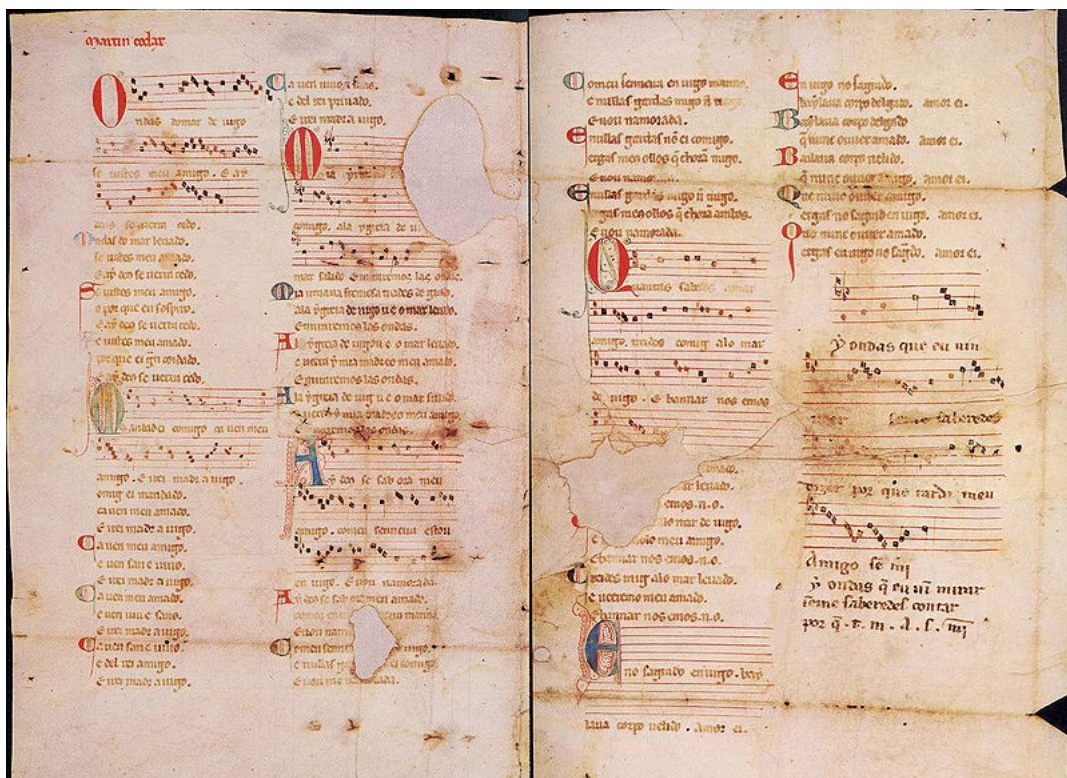 martin codax
Ondas do mar de uigo
se uistes meu amigo. E ay
deus se uerra cedo.
Ondas do mar leuado.
se uistes meu amado.
E ay deus se uerra cedo.
Se uistes meu amigo.
o por que eu sospiro.
E ay deus se uerra cedo.
Se uistes meu amado.
por que ei gran coidado.
E ay deus se uerra cedo.
Mandad ei comigo ca uen meu
amigo. E irei madr a uigo.
Comig ei mandado.
ca uen meu amado.
E irei madr a uigo.
Ca uen meu amigo.
e uen san e uiuo.
E irei madr a uigo.
Ca uen meu amado.
e uen uiu e sano.
E irei madr a uigo.
Ca uen san e uiuo.
e del rei amigo.
E irei madr a uigo.
Ca uen uiuo e sano.
e del rei priuado.
E irei madr a uigo.
comigo. ala ygreia de
mar salido E miraremos las ondas.
Mia irmana fremosa treides de grado.
ala ygreia de uigo u e o mar leuado.
E miraremos las ondas.
A la ygreia de uigo u e o mar leuado.
e uerra y mia madre e meu amado.
E miraremos las ondas.
A la ygreia de uigo u e o mar salido.
e uerra y mia madre e meu amigo.
E miraremos las ondas.
Ay deus se sab ora meu
amigo. com eu senneira estou
en uigo. E uou namorada.
Ay deus se sab ora meu amado.
com eu en uigo senneira manno.
E uou namorada.
Com eu senneira
e nullas gardas ei comigo.
E uou namorada.
Com eu senneira en uigo manno.
e nullas gardas migo n trago.
E uou namorada.
E nullas gardas no ei comigo.
ergas meus ollos q chora migo.
E uou namorada.
E nullas gardas migo n trago.
ergas meus ollos q chora ambos.
E uou namorada.
Quantas sabedes amar
amigo. treides comig alo mar
de uigo. E bannar nos emos
amado.
mar leuado.
emos. n. o.
alo mar de uigo.
meu amigo.
E bannar nos emos. n. o.
Treides mig alo mar leuado.
e ueeremo meu amado.
E bannar nos emos. n. o.
Eno sagrado en uigo. bay
laua corpo uelido. Amor ei.
En uigo no sagrado.
baylaua corpo delgado. amor ei.
Baylaua corpo delgado
q nunc ouuer amado. amor ei.
Bailaua corpo uelido.
q nunc ouuer amigo. amor ei.
Que nunc ouuer amigo.
ergas no sagrad en uigo. amor ei.
Que nunc ouuer amado.
ergas en uigo no sagrado. amor ei.
Y ondas que eu uin
ueer se me saberedes
dizer por que tarda meu
Amigo se mi
Y ondas q eu uin mirar
se me saberedes contar
por q. t. m. A. s. mi